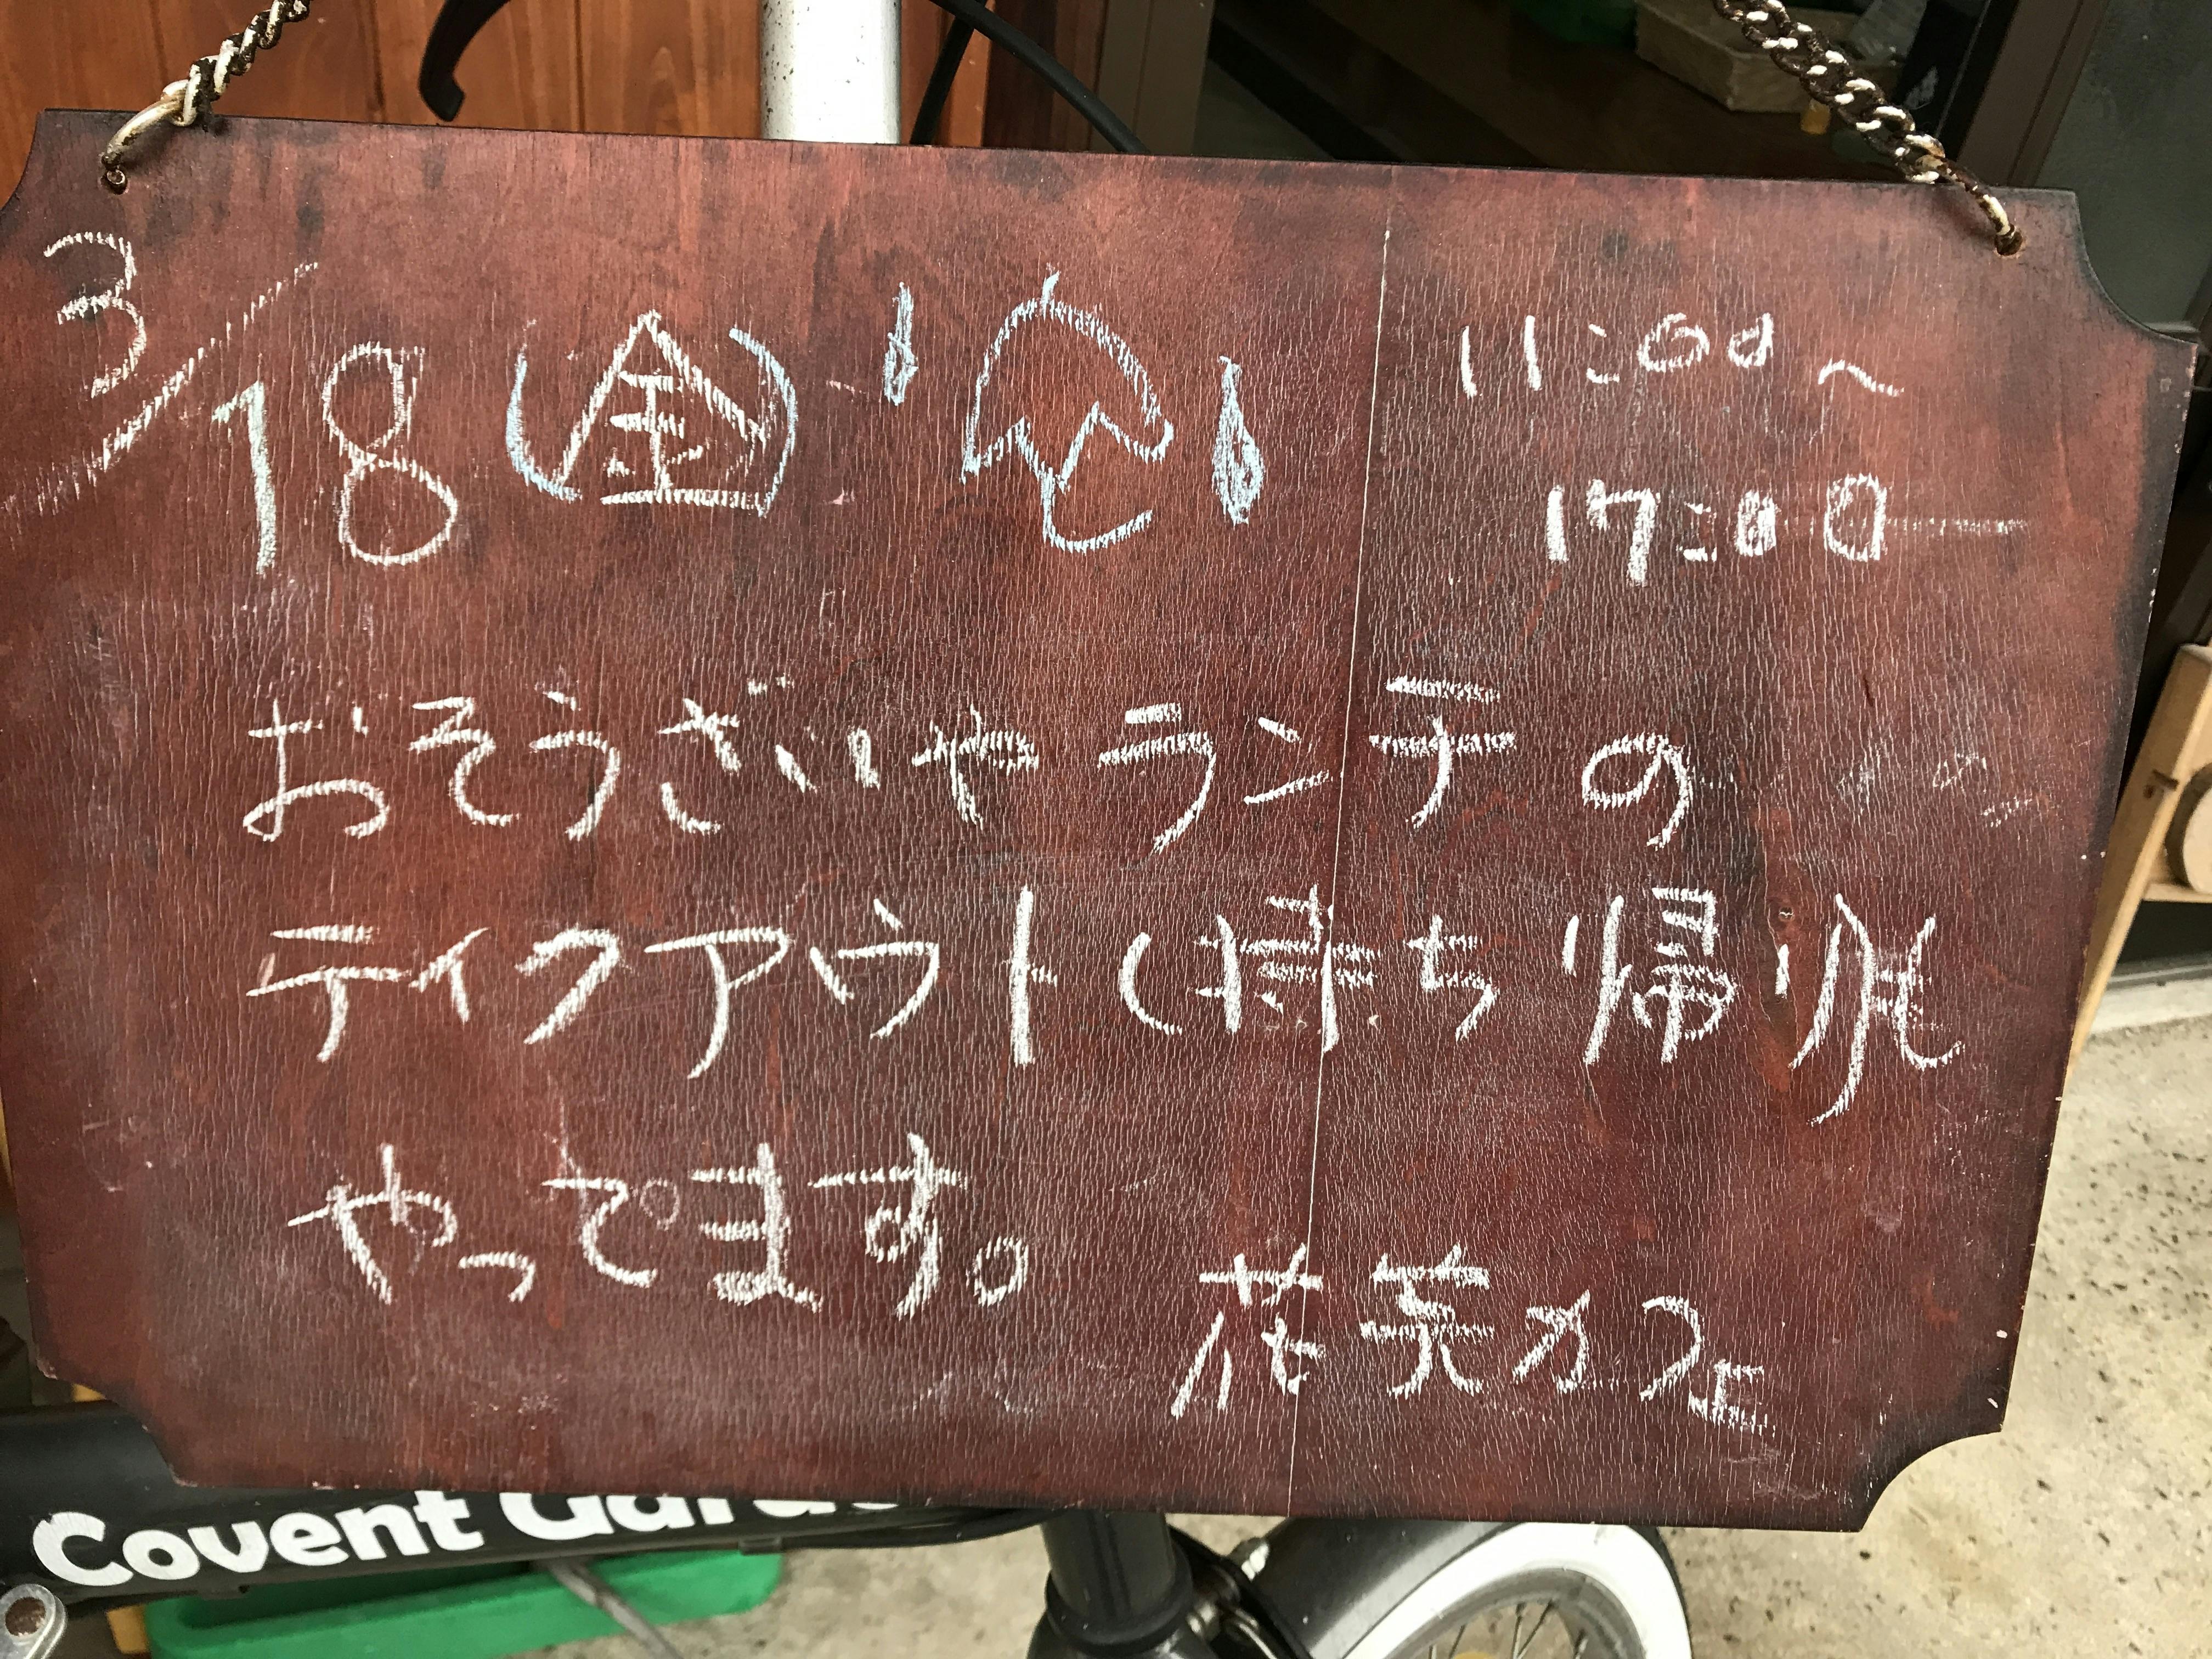 3/18(金)
11:00〜
17:00
おそうざいやランチの
テイクアウト(持ち帰り)
やってます。
花笑カフェ
Covent Garde